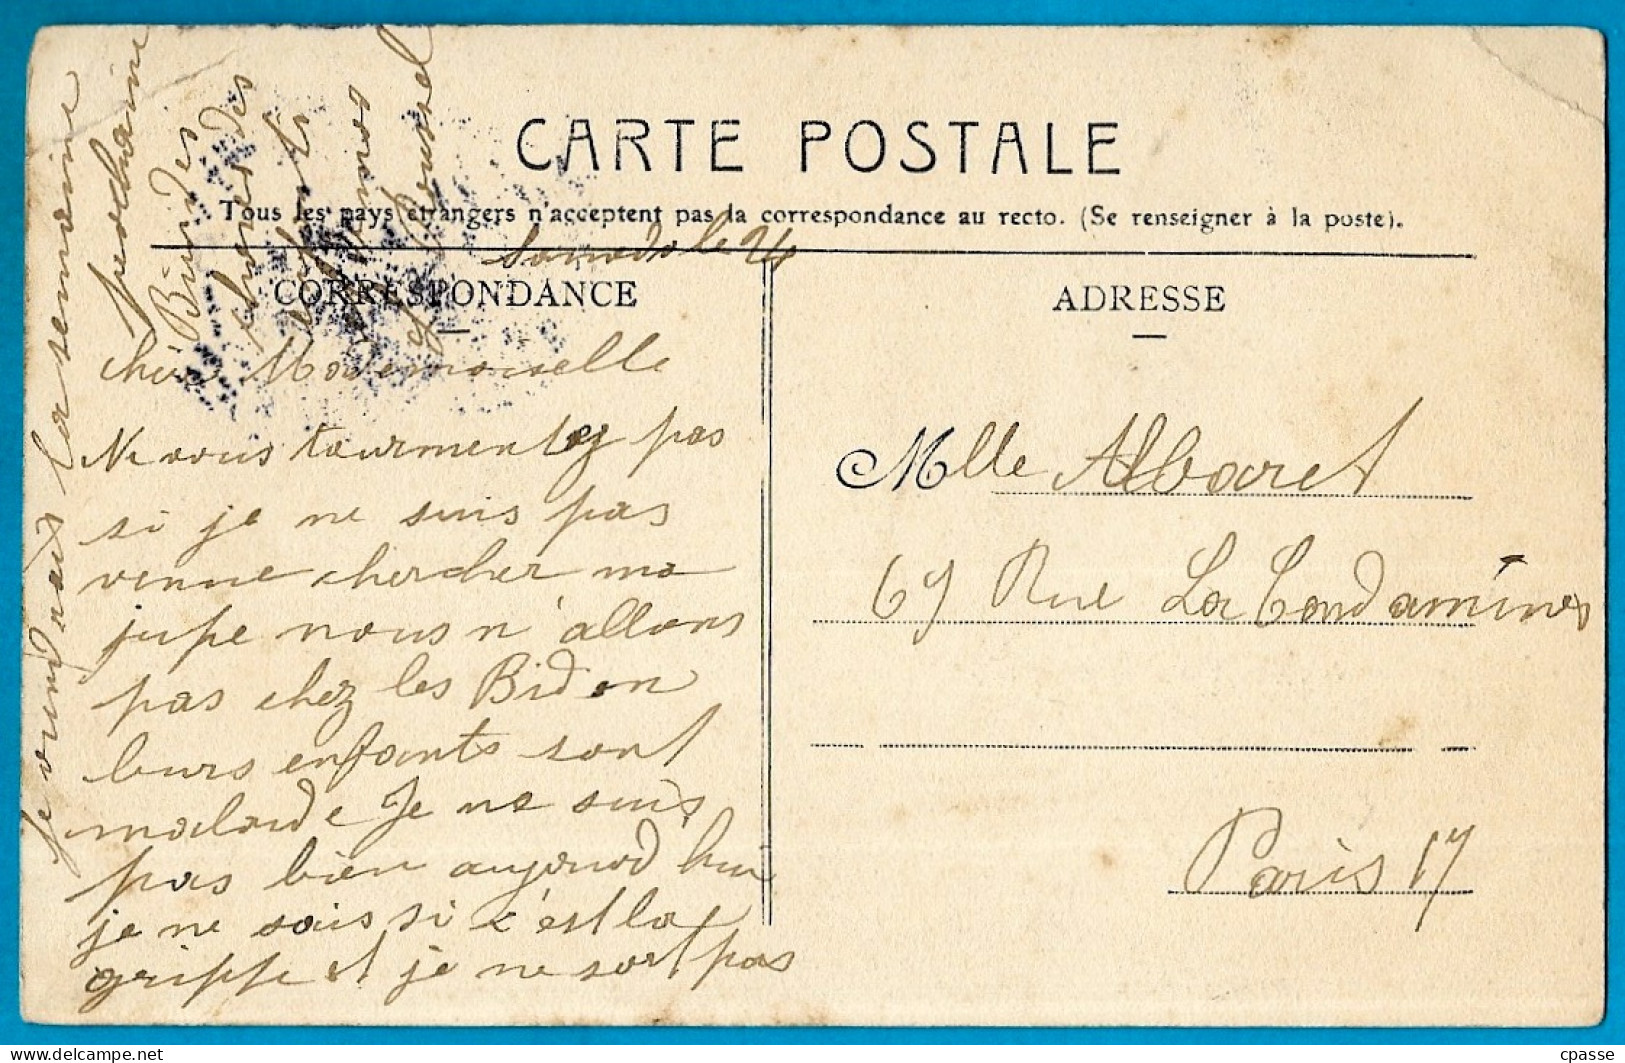 CARTE POSTALE
Tous les pays étrangers n'acceptent pas la correspondance au recto. (Se renseigner à la poste).
CORRESPONDANCE
ADRESSE
Samedi le 24
Mademoiselle
Ne vous tourmentez pas
si je ne suis pas
venue chercher ma
jupe nous n'allons
pas chez les Bidon
leurs enfants sont
malade Je ne suis
pas bien aujourd hui
je ne sais si c'est la
grippe et je ne sort pas
je viendrais la semaine
prochaine
Bien des
choses des
Roussel
Mlle Albaret
69 Rue La Condamines
Paris 17
cpasse